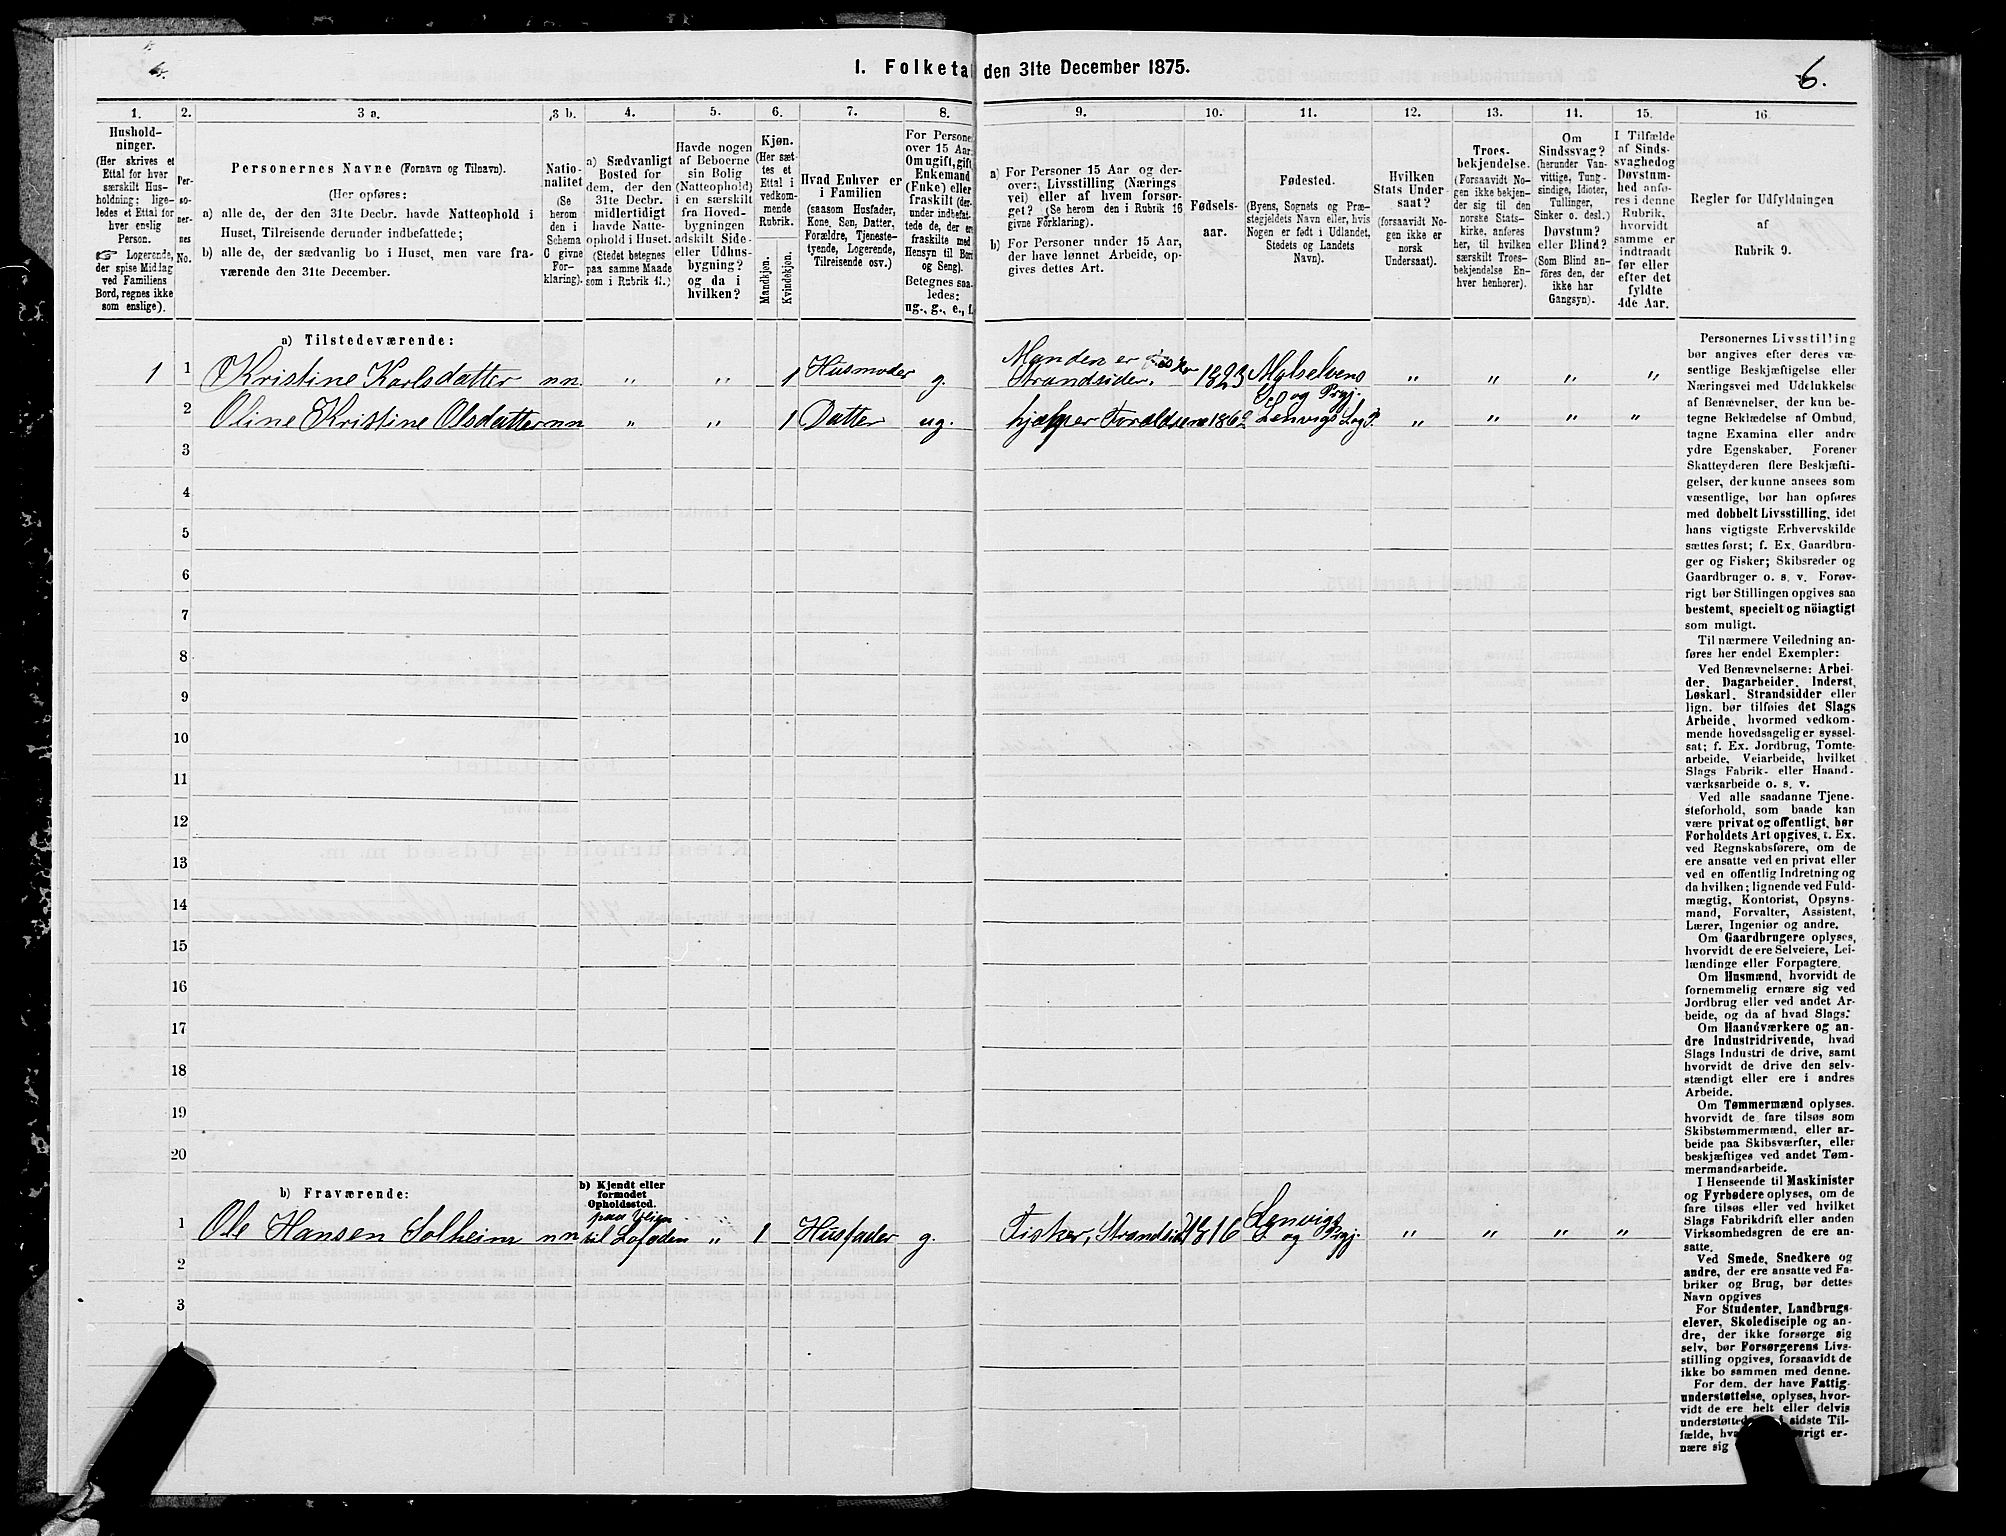 6.
1. Folketal den 31te December 1875.
6.
1.
Hushold-
ninger.
(Her skrives et
Ettal for hver
særskilt Hus-
holdning; lige-
ledes et Ettal for
hver enslig
Person.
☞ Logerende,
der spise Middag
ved Familiens
Bord, regnes ikke
som enslige).
2.
Per-
so-
ner-
nes
No.
3 a.
Personernes Navne (Fornavn og Tilnavn).
(Her opføres:
a) alle de, der den 31te Decbr. havde Natteophold i
Huset, Tilreisende derunder indbefattede;
b) alle de, der sædvanlig bo i Huset, men vare fra-
værende den 31te December.
3 b.
Natio-
nalitet
(Se
herom
den i
Schema
C givne
For-
klaring).
4.
a) Sædvanligt
Bosted for
dem, der den
31te Decbr.
midlertidigt
havde Natte-
ophold i Huset.
(Stedet betegnes
paa samme Maade
som i Rubrik 11.)
5.
Havde nogen
af Beboerne
sin Bolig
(Natteophold)
i en særskilt
fra Hoved-
bygningen
adskilt Side-
eller Udhus-
bygning?
og da i
hvilken?
6.
Kjøn.
(Her sæt-
tes et
Ettal i
vedkom-
mende
Rubrik.
Mandkjøn.
Kvindekjøn.
7.
Hvad Enhver er
i Familien
(saasom Husfader,
Kone, Søn, Datter,
Forældre, Tjeneste-
tyende, Logerende,
Tilreisende osv.)
8.
For Personer
over 15 Aar:
Om ugift, gift,
Enkemand
(Enke) eller
fraskilt (der-
under indbefat-
tede de, der ere
fraskilte med
Hensyn til Bord
og Seng).
Betegnes saa-
ledes:
ug., g., e., f.
9.
a) For Personer 15 Aar og der-
over: Livsstilling (Nærings-
vei) eller af hvem forsør-
get? (Se herom den i Rubrik 16
givne Forklaring).
b) For Personer under 15 Aar,
der have lønnet Arbeide, op-
gives dettes Art.
10.
Fødsels-
aar.
11.
Fødested.
(Byens, Sognets og Præ-
stegjeldets Navn eller, hvis
Nogen er født i Udlandet,
Stedets og Landets
Navn).
12.
Hvilken
Stats Under-
saat?
(forsaavidt No-
gen ikke er
norsk
Undersaat).
13.
Troes-
bekjendelse.
(Forsaavidt No-
gen ikke bekjen-
der sig til den
norske Stats-
kirke, anføres
her, til hvilken
særskilt Troes-
bekjendelse En-
hver henhører).
14.
Om
Sindssvag?
(herunder Van-
vittige, Tung-
sindige, Idioter,
Sinker o. desl.)
Døvstum?
eller Blind?
(Som Blind an-
føres den, der
ikke har
Gangsyn).
15.
I Tilfælde
af Sinds-
svaghed og
Døvstum-
hed anfø-
res i denne
Rubrik,
hvorvidt
samme er
indtraadt
før eller
efter det
fyldte
4de Aar.
16.
Regler for Udfyldningen
af
Rubrik 9.
a) Tilstedeværende:
1 1 Kristine Karlsdatter nn. „ „ 1 Husmoder g. Manden er Fisker Strandsider. 1823 Malselvens S. og Prgj. „ „ „ „
2 Oline Kristine Olsdatter nn „ „ 1 Datter ug. hjælper Forældrene 1862 Lenvigs S. og P. „ „ „ „
3
4
5
6
7
8
9
10
11
12
13
14
15
16
17
18
19
20
b) Fraværende:
b) Kjendt eller
formodet
Opholdssted.
1 Ole Hansen Solheim nn. paa Veien til Lofoden „ 1 Husfader g. Fisker, Strandsid. 1816 Lenvigs S. og Prgj. „ „ „ „
2
3
Personernes Livsstilling
bør angives efter deres væ-
sentlige Beskjæftigelse eller
Næringsvei med Udelukkelse
af Benævnelser, der kun be-
tegne Beklædelse af Ombud,
tagne Examina eller andre
ydre Egenskaber. Forener
Skatteyderen flere Beskjæfti-
gelser, der kunne ansees som
væsentlige, bør han opføres
med dobbelt Livsstilling, idet
hans vigtigste Erhvervskilde
sættes først; f. Ex. Gaardbru-
ger og Fisker; Skibsreder og
Gaardbruger o. s. v. Forøv-
rigt bør Stillingen opgives saa
bestemt, specielt og nöiagtigt
som muligt.
Til nærmere Veiledning an-
føres her endel Exempler:
Ved Benævnelserne: Arbei-
der, Dagarbeider, Inderst,
Løskarl, Strandsidder eller
lign. bør tilføies det Slags
Arbeide, hvormed vedkom-
mende hovedsagelig er syssel-
sat; f. Ex. Jordbrug, Tomte-
arbeide, Veiarbeide, hvilket
Slags Fabrik- eller Haand-
værksarbeide o. s. v.
Ved alle saadanne Tjene-
steforhold, som baade kan
være privat og offentligt, bør
Forholdets Art opgives, t. Ex.
ved Regnskabsførere, om de
ere ansatte ved en privat eller
ved en offentlig Indretning og
da hvilken; lignende ved Fuld-
mægtig, Kontorist, Opsyns-
mand, Forvalter, Assistent,
Lærer, Ingeniør og andre.
Om Gaardbrugere oplyses,
hvorvidt de ere Selveiere, Lei-
lændinge eller Forpagtere.
Om Husmænd, hvorvidt de
fornemmelig ernære sig ved
Jordbrug eller ved andet Ar-
beide, og da af hvad Slags.
Om Haandværkere og an-
dre Industridrivende, hvad
Slags Industri de drive, samt
hvorvidt de drive den selv-
stændigt eller ere i andres
Arbeide.
Om Tømmermænd oplyses,
hvorvidt de fare tilsøs som
Skibstømmermænd, eller ar-
beide paa Skibsværfter, eller
beskjæftiges ved andet Tøm-
mermandsarbeide.
I Henseende til Maskinister
og Fyrbødere oplyses, om de
fare tilsøs eller ved hvilket
Slags Fabrikdrift eller anden
Virksomhedsgren de ere an-
satte.
Ved Smede, Snedkere og
andre, der ere ansatte ved Fa-
briker og Brug, bør dettes
Navn opgives
For Studenter, Landbrugs-
elever, Skoledisciple og an-
dre, der ikke forsørge sig
selv, bør Forsørgerens Livs-
stilling opgives, forsaavidt de
ikke bo sammen med denne.
For dem, der have Fattig-
understøttelse, oplyses, hvor-
vidt de ere helt eller delvis
i sidste Til-
fælde, er-
nære sig